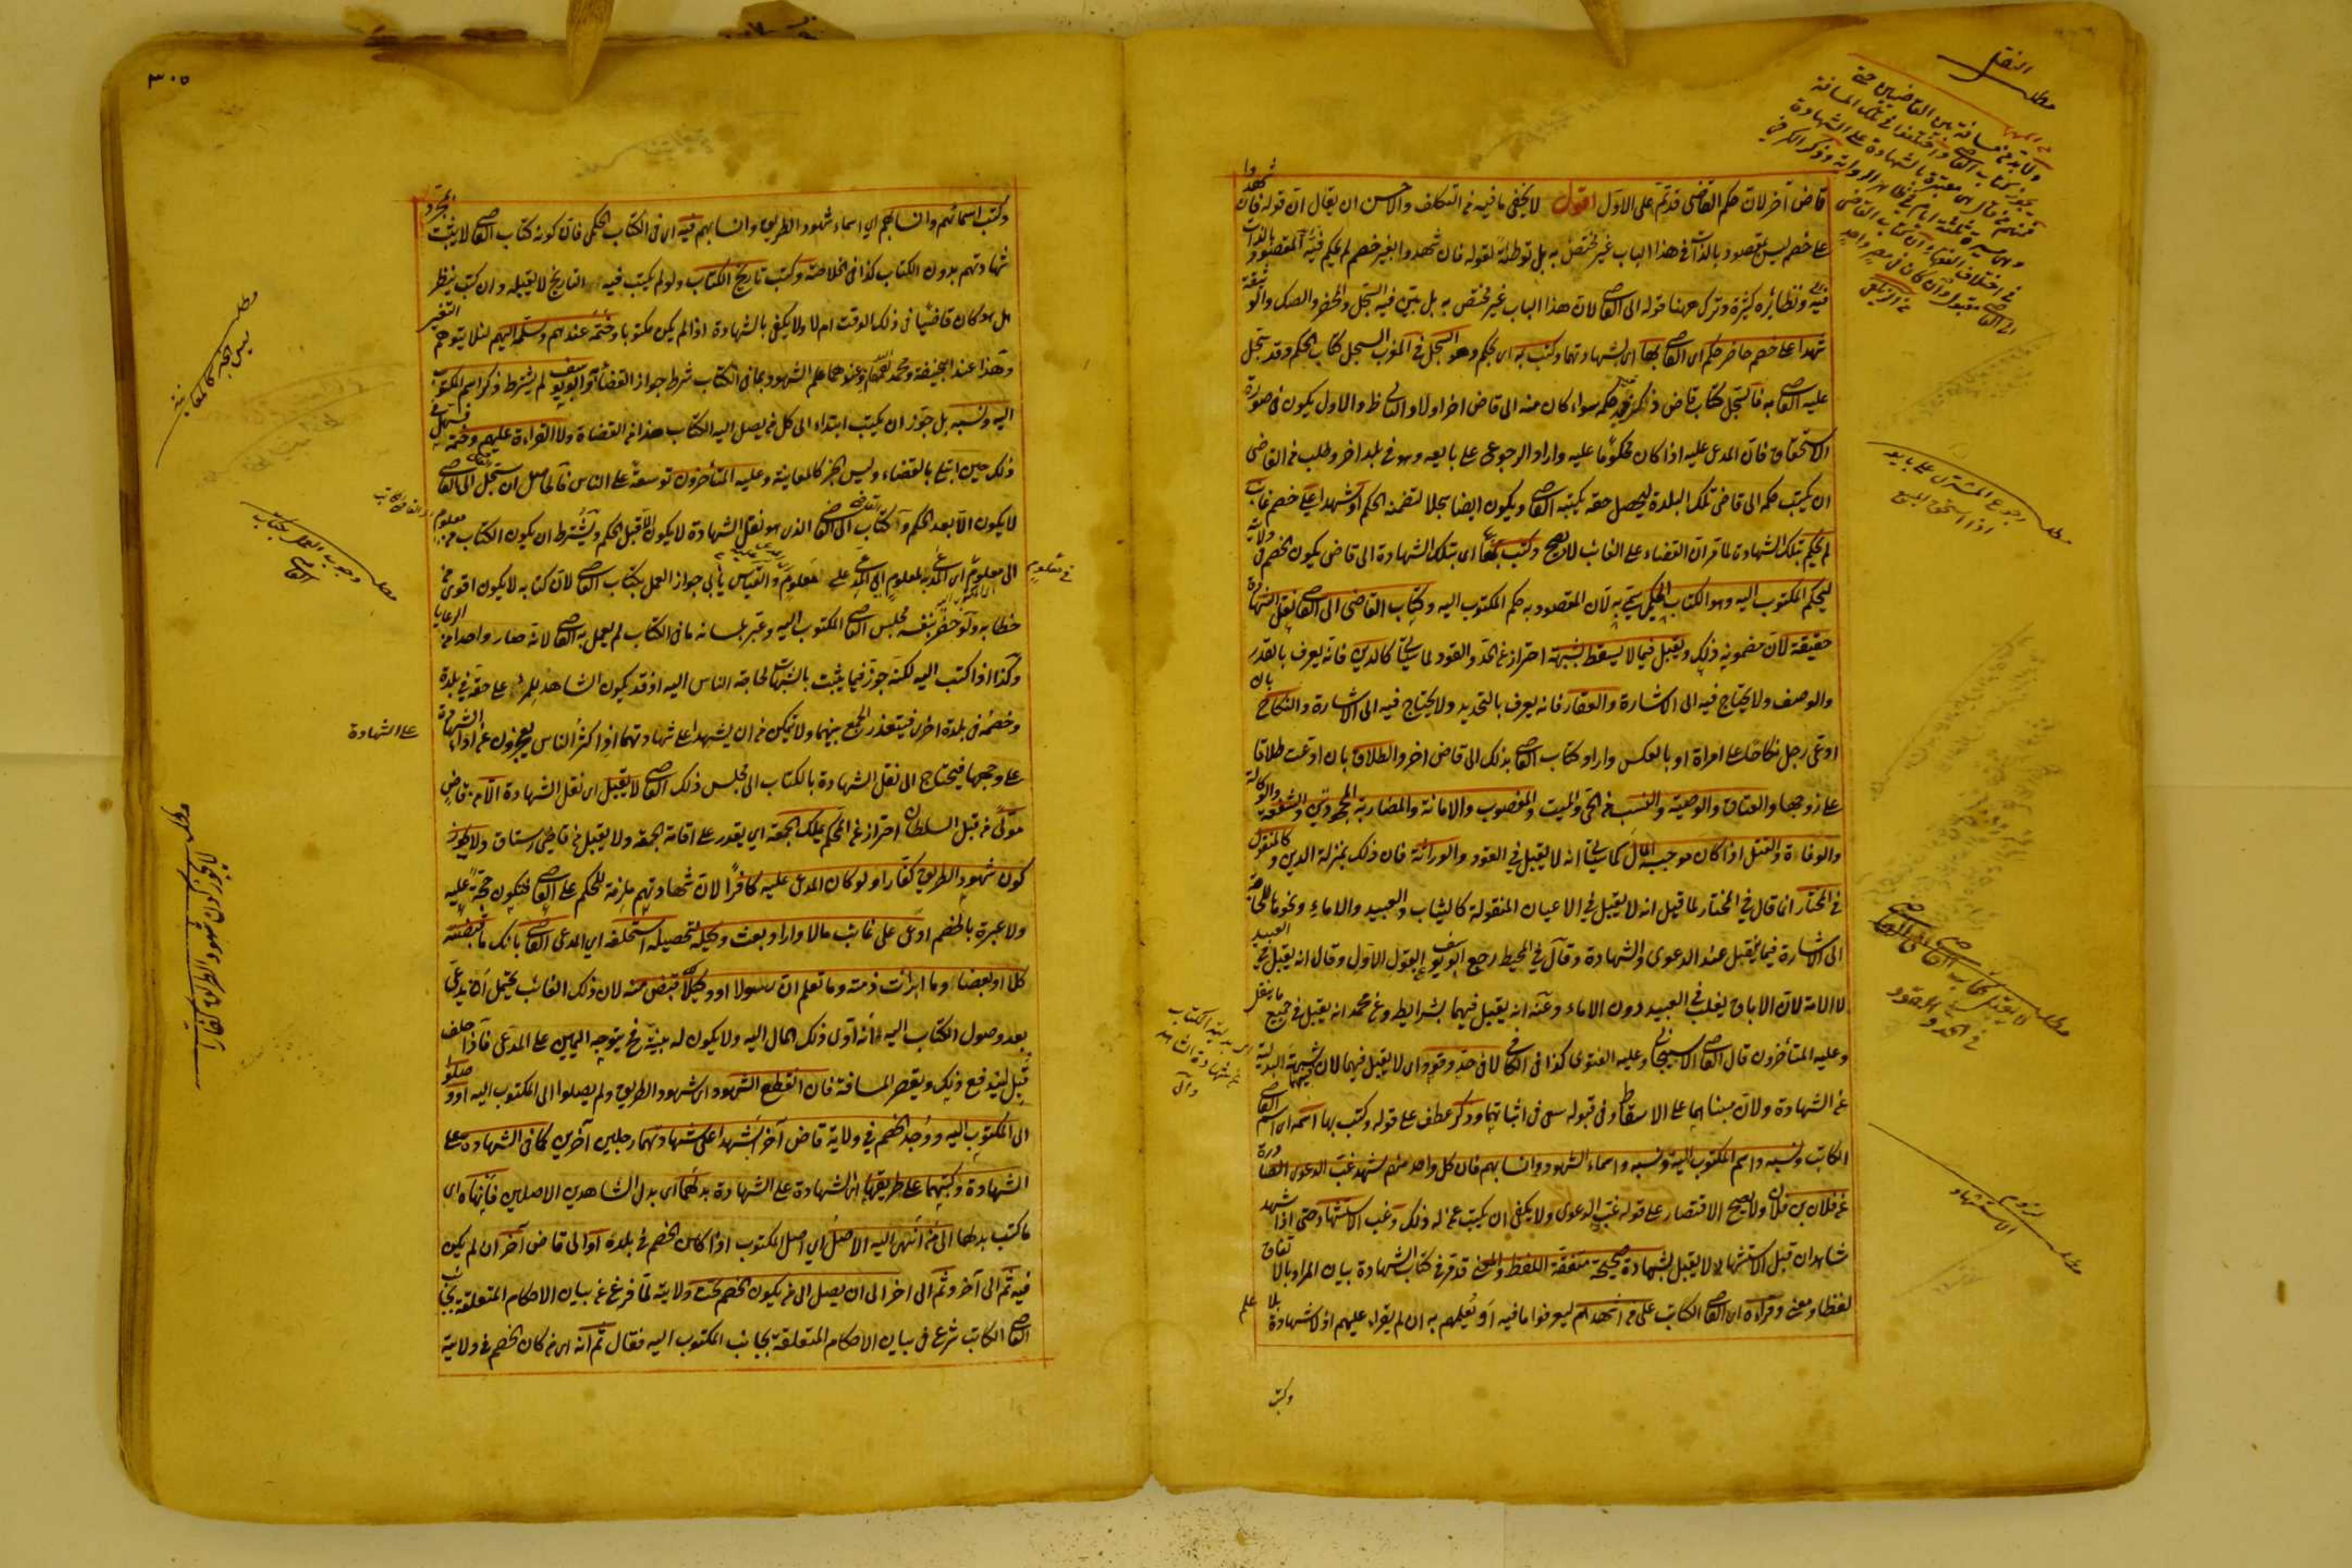 قاض آخر لان حكم القاضى قد تم على الاول اقول لا يخفى ما فيه من التكلف والاحسن ان يقال ان قوله فان شهدوا
على خصم ليس بمقصود بالذات فى هذا الباب غير مختص به بل توطئة لقوله فان شهدوا بغير خصم لم يحكم فيه المقصود بالذات
فيه ونظائره كثيرة وترك ههنا قوله الى القاضى لان هذا الباب غير مختص به بل بين فيه السجل والمحضر والصك والوثيقة
شهدا على خصم حاضر حكم اى القاضى بها اى بشهادتهما وكتب به اى بحكمه وهو السجل فى المغرب السجل كتاب الحكم وقد سجل
عليه القاضى به فالسجل كتاب قاض ذكر فيه حكمه سواء كان منه الى قاض آخر اولا والثانى ظ والاول يكون فى صورة
الاستحقاق فان المدعى عليه اذا كان محكوما عليه واراد الرجوع على بايعه وهو فى بلد آخر وطلب من القاضى
ان يكتب حكمه الى قاضى تلك البلدة ليحصل حقه يكتبه القاضى ويكون ايضا سجلا لتضمنه الحكم او شهدا على خصم غائب
لم يحكم بتلك الشهادة لما مر ان القضاء على الغائب لا يصح وكتب بها اى بتلك الشهادة الى قاضى يكون الخصم فى ولايته
ليحكم المكتوب اليه وهو الكتاب الحكمى سمى به لان المقصود به حكم المكتوب اليه وكتاب القاضى الى القاضى نقل الشهادة
حقيقة لان مضمونه ذلك ويقبل فيما لا يسقط بشبهة احتراز عن الحد والقود لما سيأتى كالدين فانه يعرف بالقدر
والوصف ولا يحتاج فيه الى الاشارة والعقار فانه يعرف بالتحديد ولا يحتاج فيه الى الاشارة والنكاح بان
ادعى رجل نكاحا على امراة او بالعكس واراد كتاب القاضى بذلك الى قاض آخر والطلاق بان ادعت طلاقا
على زوجها والعتاق والوصية والنسب من الحى والميت والمغصوب والامانة والمضاربة المجحودتين والشفعة والوكالة
والوفاة والقتل اذا كان موجبه المال لما سيأتى انه لا يقبل فى القود والوراثة فان ذلك بمنزلة الدين وكالمنقول
فى المختار انما قال فى المختار لما قيل انه لا يقبل فى الاعيان المنقولة كالثياب والعبيد والاماء ونحوها للحاجة
الى الاشارة فيما يقبل عند الدعوى والشهادة وقال فى المحيط رجع ابو يوسف عن القول الاول وقال انه يقبل فى العبيد
لا الامة لان الاباق يغلب فى العبيد دون الاماء وعنه انه يقبل فيهما بشرايطه وعن محمد انه يقبل فى جميع ما ينقل
وعليه المتأخرون قال القاضى الاسبيجابى وعليه الفتوى كذا فى الكافى لا فى حد وقود اى لا يقبل فيهما لان فيهما شبهة البدلية
عن الشهادة ولان مبناهما على الاسقاط وفى قبوله سعى فى اثباتهما وذكر عطف على قوله وكتب بها اسمه اى اسم القاضى
الكاتب ونسبه واسم المكتوب اليه ونسبه واسماء الشهود وانسابهم فان كل واحد منهم شهد غب الدعوى الصادرة
عن فلان بن فلان ولا يصح الاقتصار على قوله غب الدعوى ولا يكفى ان يكتب عن له ذلك وغب الاستشهاد حتى اذا شهد
شاهدان قبل الاستشهاد لا يقبل شهادة صحيحة متفقة اللفظ والمعنى قد مر فى كتاب الشهادة بيان المراد بالاتفاق
لفظا ومعنى وقرأه اى القاضى الكاتب على من اشهدهم ليعرفوا ما فيه او يعلمهم به ان لم يقرأ عليهم اذ لا شهادة بلا علم
وكتب
مطلب النقل
مطلب رجوع المشترى على بايعه
اذا استحق المبيع
مطلب لا يقبل كتاب القاضى الى القاضى
فى الحد والقود
مطلب لزوم
الاستشهاد
٣٠٥
وكتب اسمائهم وانسابهم اى اسماء شهود الطريق وانسابهم فيه اى فى الكتاب الحكمى فان كونه كتاب القاضى لا يثبت بمجرد
شهادتهم بدون الكتاب كذا فى الخلاصة وكتب تاريخ الكتاب ولو لم يكتب فيه التاريخ لا يقبله وان كتب ينظر
هل هو كان قاضيا فى ذلك الوقت ام لا ولا يكفى بالشهادة اذا لم يكن مكتوبا وختمه عندهم وسلمه اليهم لئلا يتوهم التغير
وهذا عند ابى حنيفة ومحمد وعندهما علم الشهود بما فى الكتاب شرط جواز القضاء وابو يوسف لم يشترط ذكر اسم المكتوب
اليه ونسبه بل جوز ان يكتب ابتداء الى كل من يصل اليه الكتاب هذا من القضاة ولا القراءة عليهم وختمه فسهل فى
ذلك حين ابتلى بالقضاء وليس الخبر كالمعاينة وعليه المتأخرون توسعة على الناس فالحاصل ان سجل القاضى الى القاضى
لا يكون الا بعد الحكم وكتاب القاضى الى القاضى الذى هو نقل الشهادة لا يكون الا قبل الحكم ويشترط ان يكون الكتاب من معلوم
الى معلوم اى المدعى به لمعلوم اى المدعى على معلوم والقياس يأبى جواز العمل بكتاب القاضى لان كتابه لا يكون اقوى من
خطابه ولو حضر بنفسه مجلس القاضى المكتوب اليه وعبر بلسانه ما فى الكتاب لم يعمل به القاضى لانه صار واحدا من الرعايا
وكذا اذا كتب اليه لكنه جوز فيما يثبت بالشبهات لحاجة الناس اليه اذ قد يكون الشاهد للمرء على حقه فى بلدة
وخصمه فى بلدة اخرى فيتعذر الجمع بينهما ولا يتمكن من ان يشهد على شهادتهما اذ اكثر الناس يعجزون عن اداء الشهادة
على وجهها فيحتاج الى نقل الشهادة بالكتاب الى مجلس ذلك القاضى لا يقبل اى نقل الشهادة الا من قاض
مولى من قبل السلطان احتراز عن المحكم يملك الجمعة اى يقدر على اقامة الجمعة ولا يقبل من قاضى رستاق ولا يجوز
كون شهود الطريق كفارا ولو كان المدعى عليه كافرا لان شهادتهم ملزمة للحكم على القاضى فتكون حجة عليه
ولا عبرة بالخصم ادعى على غائب مالا واراد بعث وكيله لتحصيله استحلفه اى المدعى القاضى بانك ما قبضته
كلا او بعضا وما ابرأت ذمته وما تعلم ان رسولا او وكيلا قبض منه لان ذلك الغائب يحتمل ان يدعى
بعد وصول الكتاب اليه انه ادى ذلك المال اليه ولا يكون له بينة فح يتوجه اليمين على المدعى فاذا حلف
قبل ليندفع ذلك ويقصر المسافة فان انقطع الشهود اى شهود الطريق ولم يصلوا الى المكتوب اليه او وصلوا
الى المكتوب اليه ووجد الخصم فى ولاية قاض آخر اشهدا على شهادتهما رجلين آخرين كما فى الشهادة على
الشهادة وكتبهما على طريقها اى الشهادة على الشهادة بدلهما اى بدل الشاهدين الاصليين فانهاه اى
ما كتب بدلهما الى من انهى اليه الاصل اى اصل المكتوب اذا كان الخصم فى بلده او الى قاض آخر ان لم يكن
فيه ثم الى آخر وثم الى آخر الى ان يصل الى من يكون الخصم تحت ولايته لما فرغ من بيان الاحكام المتعلقة بجانب
القاضى الكاتب شرع فى بيان الاحكام المتعلقة بجانب المكتوب اليه فقال ثم انه اى من كان الخصم فى ولايته
مطلب ليس الخبر كالمعاينة
مطلب وجوب العمل بكتاب
القاضى
على الشهادة